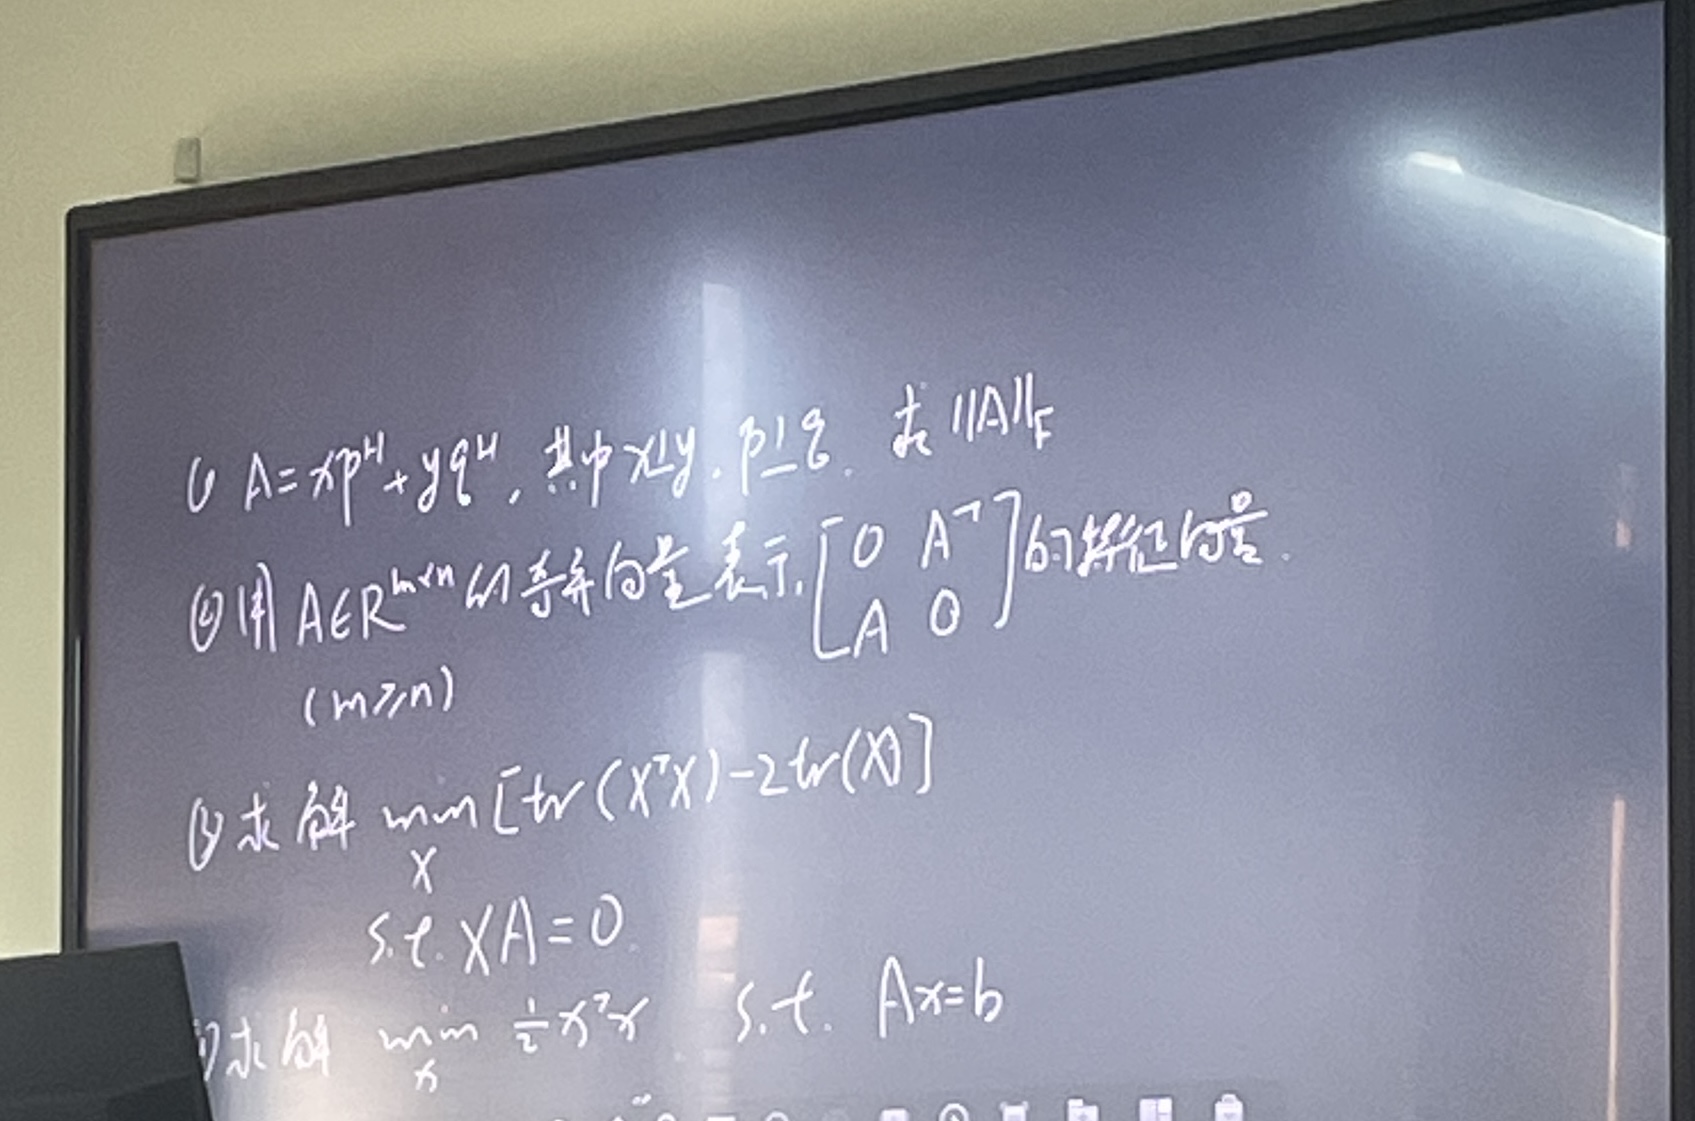 ① A=xpᴴ+yqᴴ, 其中x⊥y. p⊥q. 求 ||A||_F
② 用 A∈R^{m×n} 的奇异向量表示 [0 Aᵀ; A 0] 的特征向量.
(m≥n)
③ 求解 min_X [tr(XᵀX)-2tr(X)]
s.t. XA=0.
求解 min_x ½xᵀx s.t. Ax=b